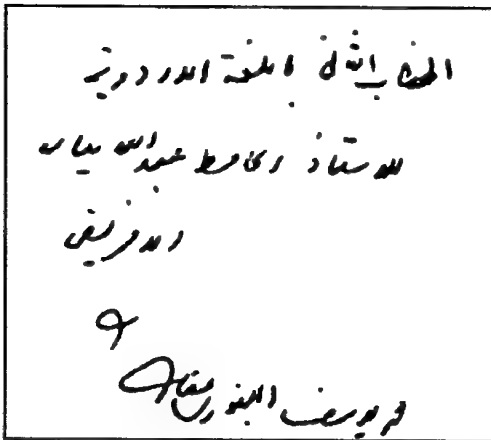 الخطاب الثانى باللغة الاردوية
للاستاذ الحافظ عبد الله بيات
الافريقى
محمد يوسف البنورى